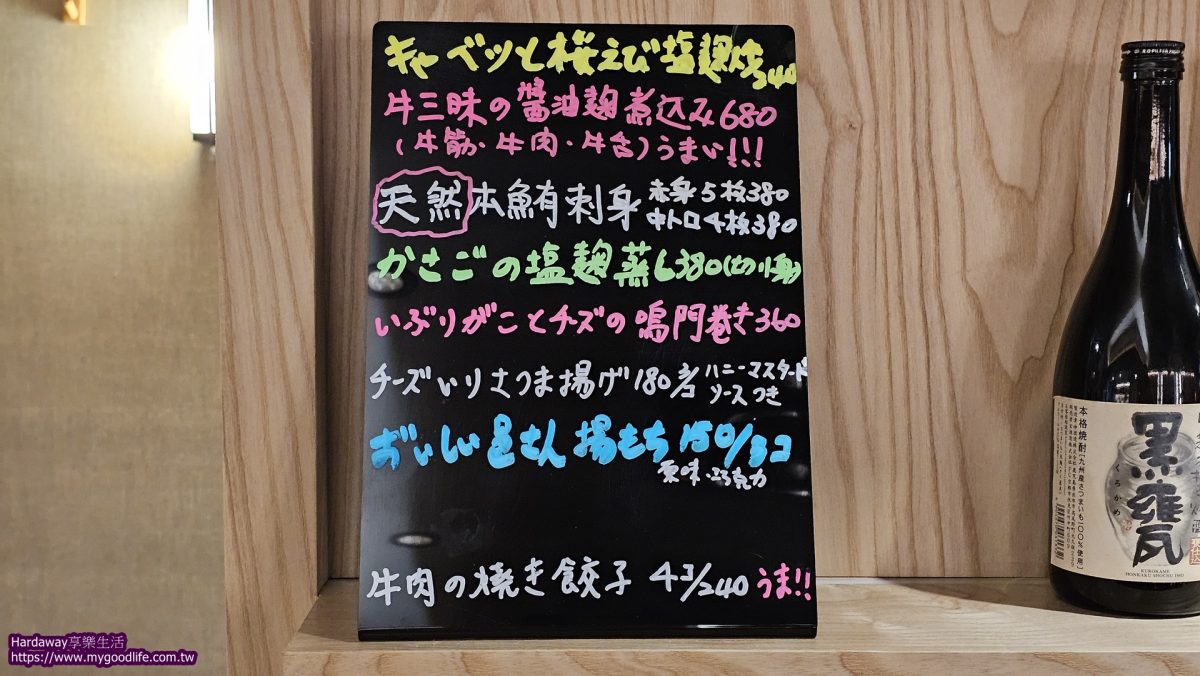 キャベツと桜えび塩麹炒 240
牛三昧の醤油麹煮込み680
(牛筋・牛肉・牛舌)うまい!!!
天然本鮪刺身 赤身5枚380
中トロ4枚380
かさごの塩麹蒸し380(切り身)
いぶりがことチーズの鳴門巻き360
チーズいりさつま揚げ180/2コ ハニーマスタード
ソースつき
おいしい 揚もち 150/3コ
栗味・巧克力
牛肉の焼き餃子 4コ/240 うま!!
本格焼酎
[九州産さつまいも100%使用]
黒甕
くろかめ
KUROKAME
HONKAKU SHOCHU IMO
Hardaway享樂生活
https://www.mygoodlife.com.tw